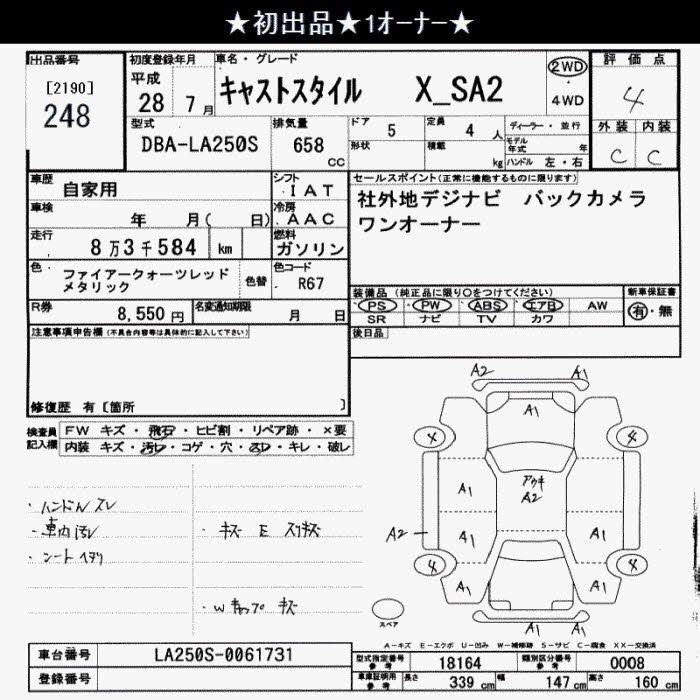 ★初出品★1オーナー★
出品番号
[2190]
248
初度登録年月
平成
28 年 7 月
車名・グレード
キャストスタイル X_SA2
2WD
・
4WD
評価点
4
外装 内装
C C
型式
DBA-LA250S
排気量
658
CC
ドア 5
定員 4 人
形状
積載 kg
ディーラー・並行
モデル年式 年
ハンドル 左・右
車歴 自家用
シフト
IAT
車検 年 月( 日)
冷房
AAC
走行 8万3千584 km
燃料
ガソリン
色 ファイアークォーツレッド
メタリック
色替
色コード
R67
R券 8,550 円
名変通知期限 月 日
セールスポイント(正常に機能するものに限ります)
社外地デジナビ バックカメラ
ワンオーナー
装備品 (純正品に限り○をつけてください)
・PS ・PW ・ABS ・エアB ・AW
SR ナビ TV カワ
新車保証書
有・無
後日品
注意事項申告欄(不具合内容等は具体的に記入して下さい)
修復歴 有〔箇所 〕
検査員
記入欄
FW キズ・飛石・ヒビ割・リペア跡・×要
内装 キズ・汚レ・コゲ・穴・スレ・キレ・破レ
・ハンドル スレ
・車内 汚レ
・シート ヘタリ
・キズ E スリキズ
・Wキャップ キズ
A2 A1
A1
4 4
A1 アウキ A2 A1
A2 A1 A1
4 4
A1 A1
A1 A1
スペア
A-キズ E-エクボ U-凹み W-補修跡 S-サビ C-腐食 XX-交換済
車台番号 LA250S-0061731
登録番号
型式指定番号
参考
18164
類別区分番号
参考
0008
車庫証明用
参考
長さ 339 cm 幅 147 cm 高さ 160 cm